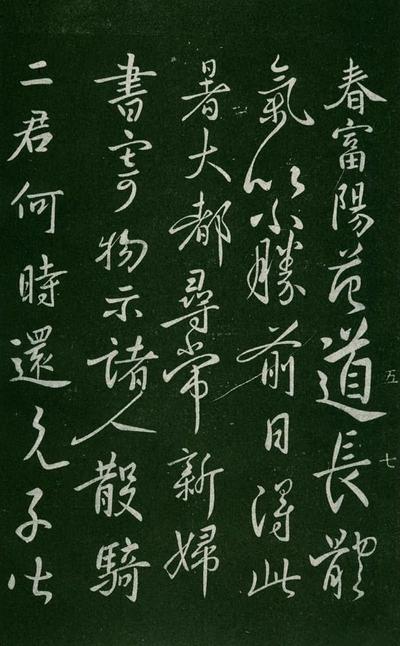 春富陽道長體
氣似不勝前日得此
暑大都尋常新婦
書寄物示諸人散騎
二君何時還兒子
五七